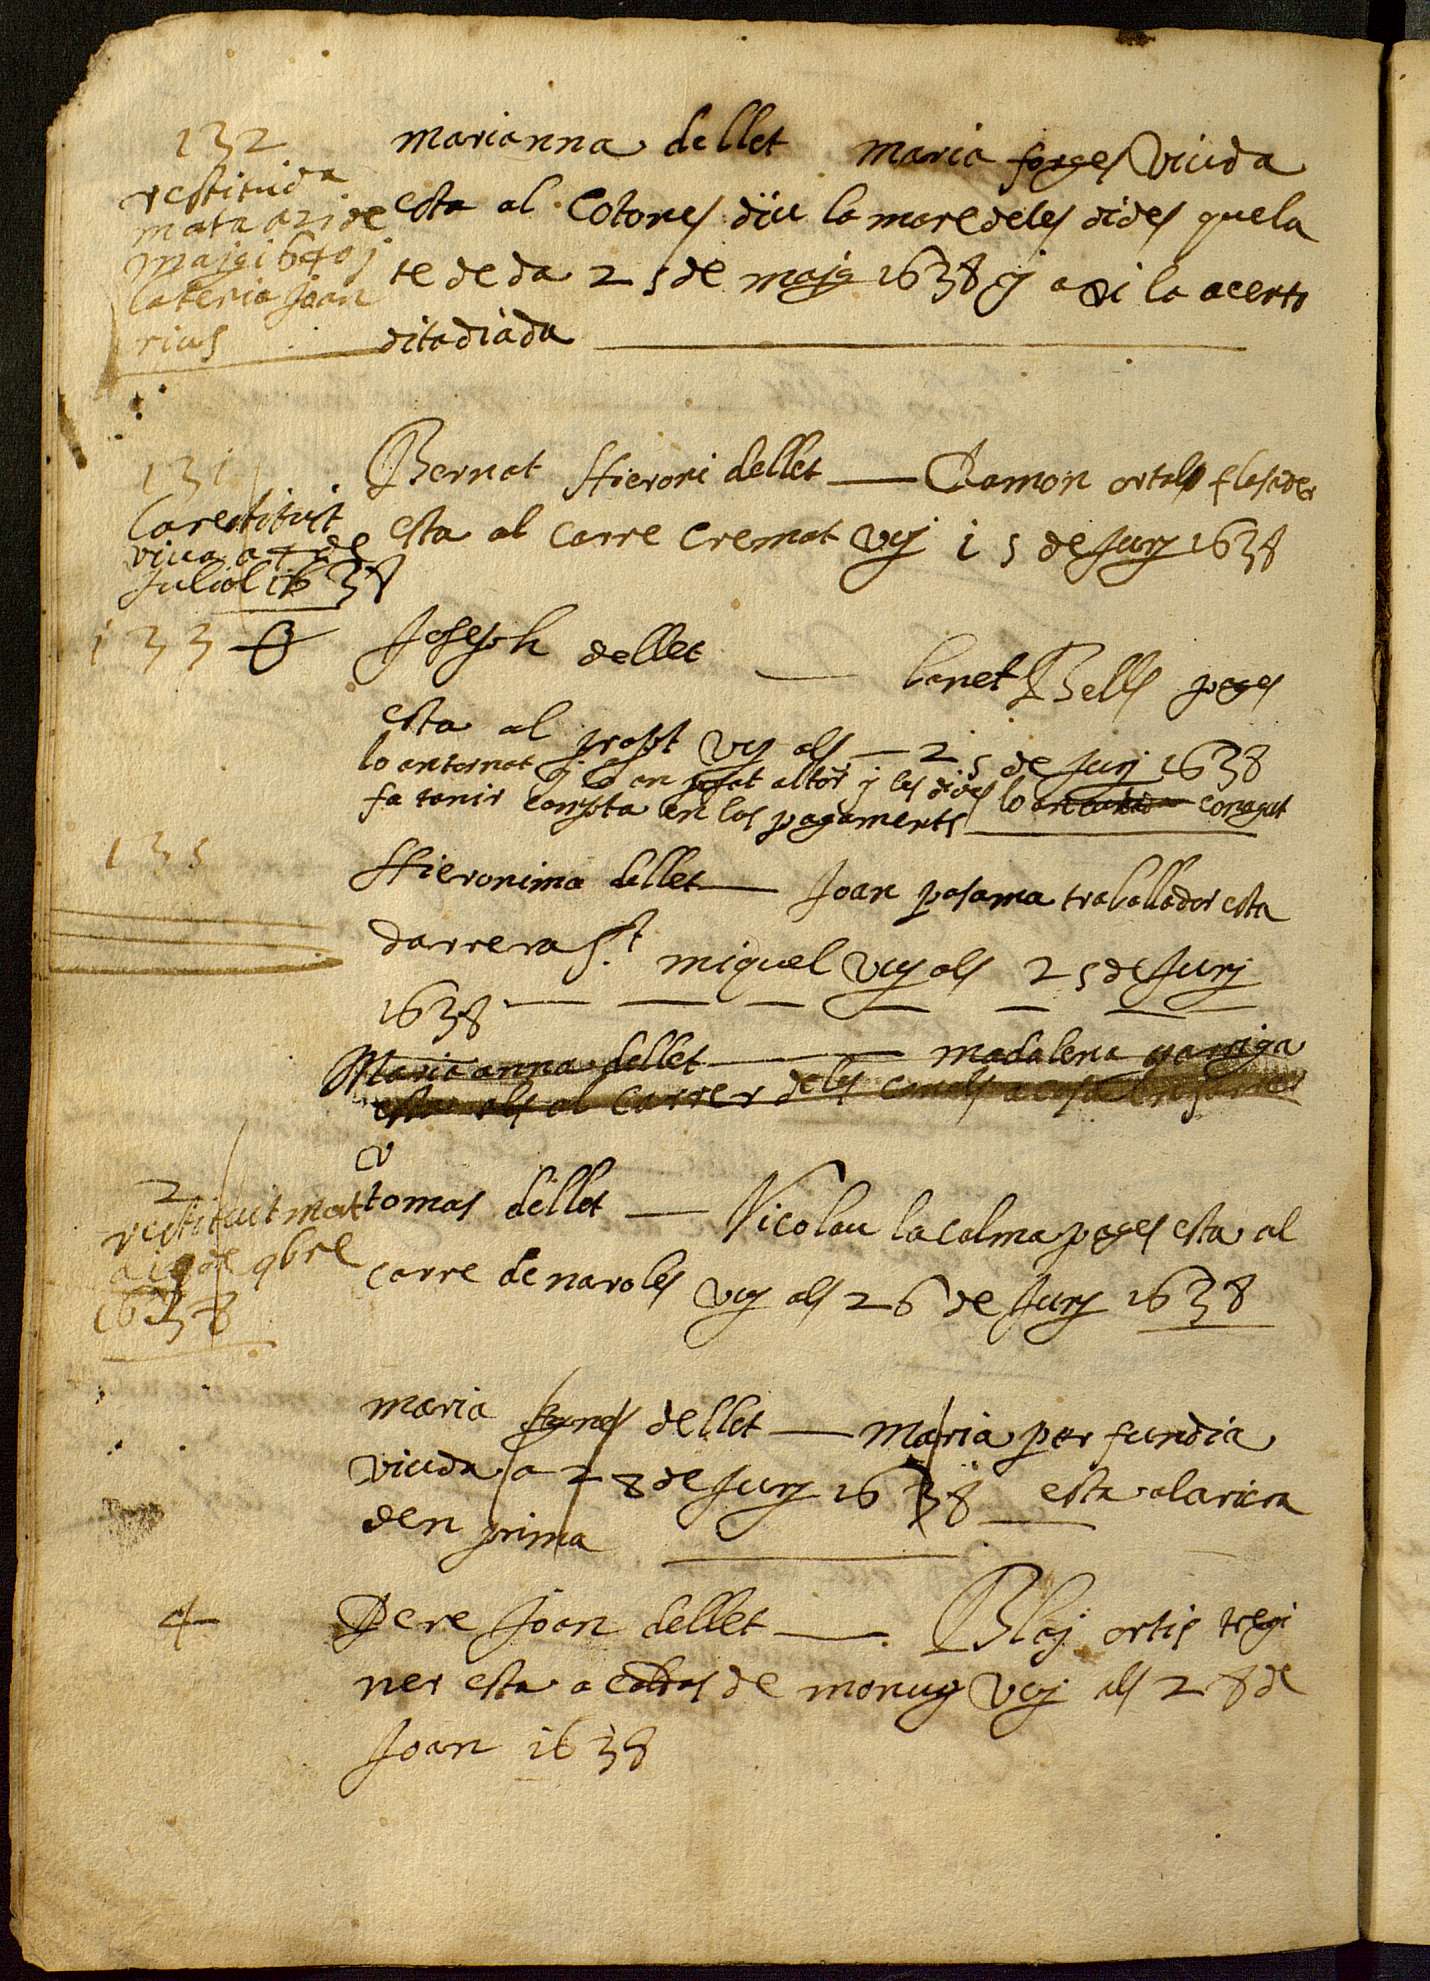 132
restituida
mata a 21 de
maig i 640 j
la tenia Joan
rius
marianna dellet maria forges viuda
esta al Cotones diu la mare deles dides que la
te de da 25 de maig 1638 y axi la acerto
dita diada
131
La restituit
viua a 4 de
Juliol 1638
Bernat Hieroni dellet — Ramon ortals flasader
esta al carre cremat vuy i 5 de Juny 1638
133
Joseph dellet — banet Bells pages
esta al prapt vuy als — 25 de Juny 1638
lo an tornat y lo an posat altor y les dides lo an conagut
fa tenir compta en los pagaments
135
Hieronima dellet — Joan pasama traballador esta
darrera St. miquel vuy als 25 de Juny
1638 — — — — — — —
Maria anna dellet — madalena garriga
esta als al carrer dels a casa
2
restituit mort
a 19 de 9bre
1638
tomas dellet — Nicolau lacalma pages esta al
carre de naroles vuy als 26 de Juny 1638
maria dellet — maria per fundia
viuda a 28 de Juny 1638 esta ala riera
den prima
4
Pere Joan dellet — Blaj ortis tregi
ner esta a caldes de monuy vuy als 28 de
Joan 1638